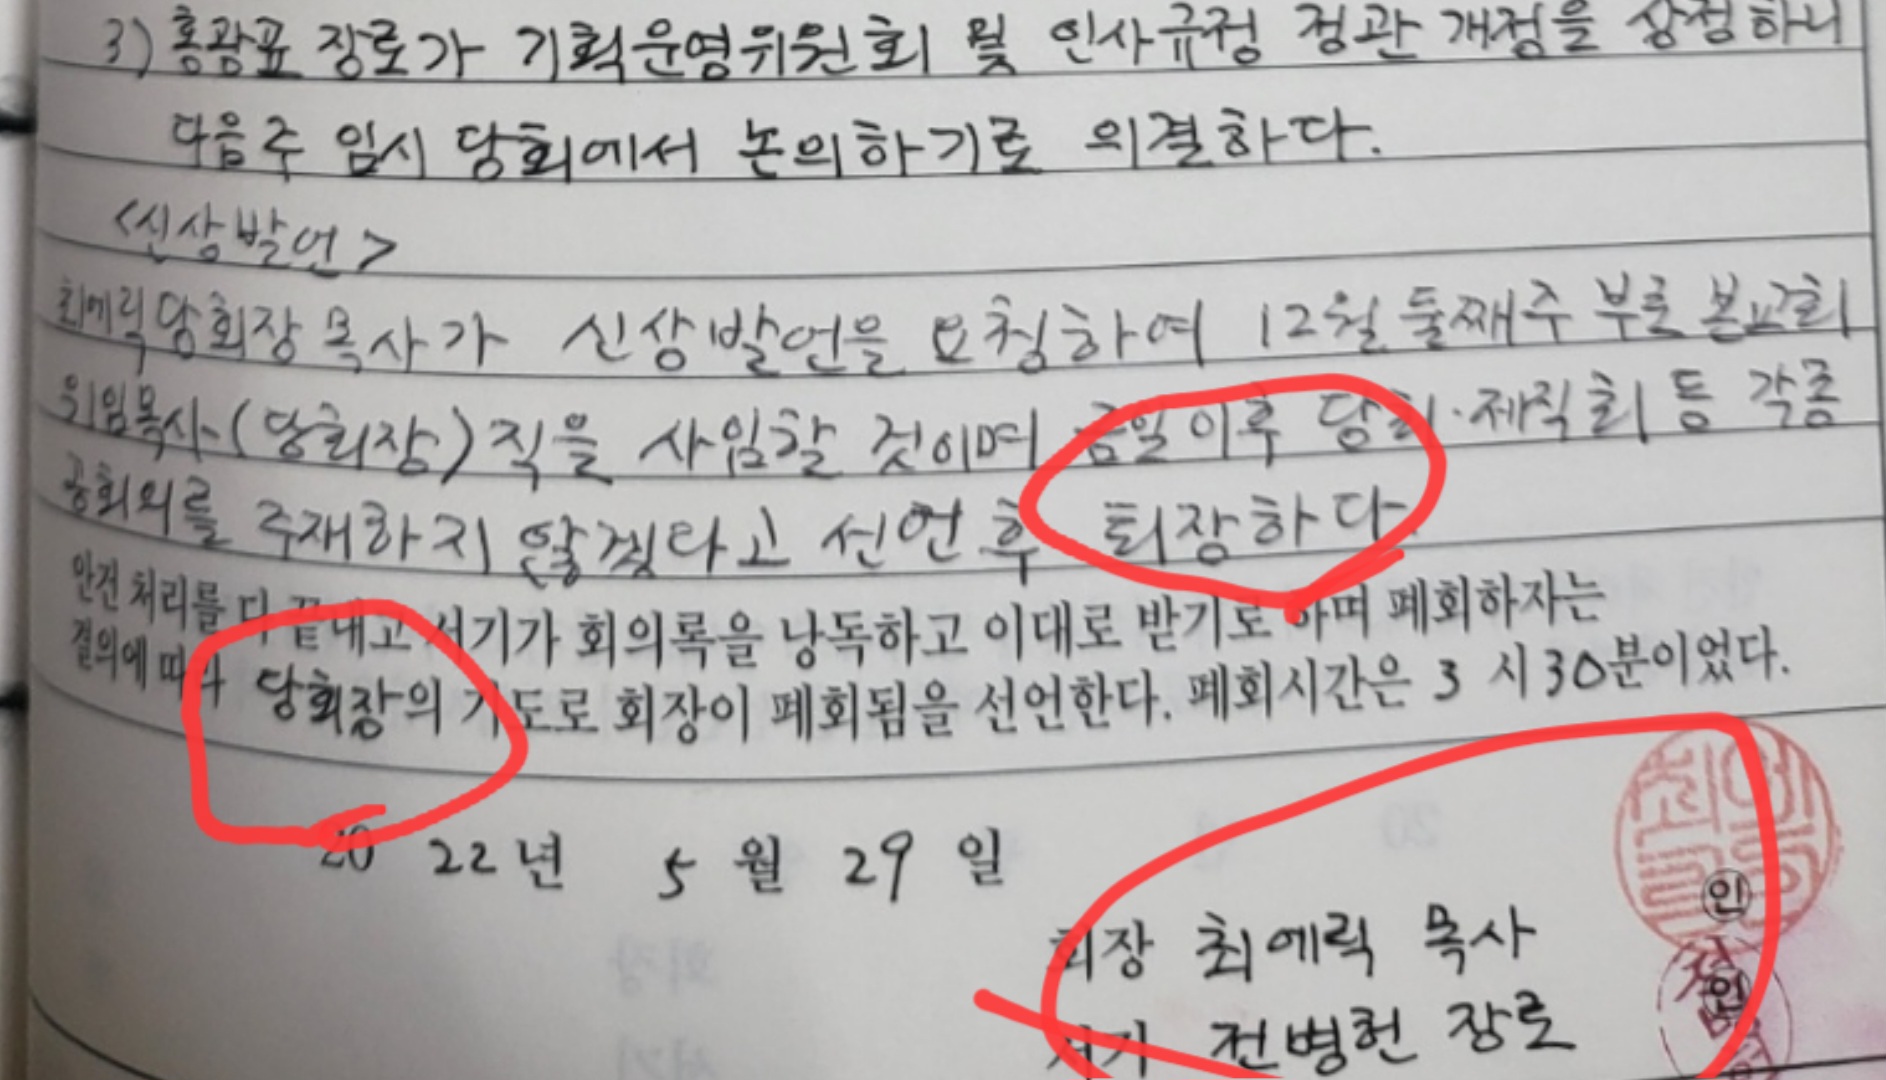 3) 홍광표 장로가 기획운영위원회 및 인사규정 정관 개정을 상정하니
다음주 임시 당회에서 논의하기로 의결하다.
<신상발언>
최에릭당회장 목사가 신상발언을 요청하여 12월 둘째주 부로 본교회
위임목사(당회장)직을 사임할 것이며 금일이후 당회·제직회 등 각종
공회의를 주재하지 않겠다고 선언 후 퇴장하다.
안건 처리를 다 끝내고 서기가 회의록을 낭독하고 이대로 받기로 하며 폐회하자는
결의에 따라 당회장의 기도로 회장이 폐회됨을 선언한다. 폐회시간은 3 시30분이었다.
20 22년 5 월 29 일
회장 최에릭 목사 인
서기 전병헌 장로 인